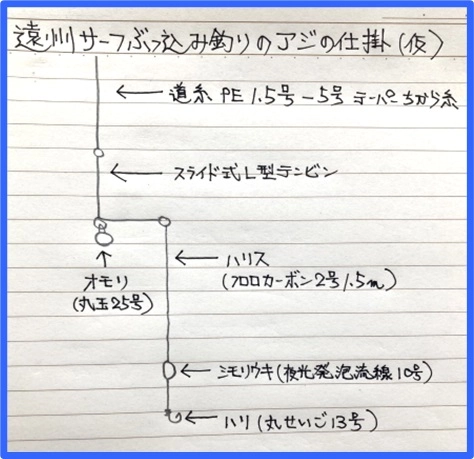 遠州サーフぶっ込み釣りのアジの仕掛(仮)
道糸 PE 1.5号-5号 テーパーちから糸
スライド式L型テンビン
オモリ
(丸玉25号)
ハリス
(フロロカーボン2号1.5m)
シモリウキ(夜光発泡流線10号)
ハリ(丸せいご13号)